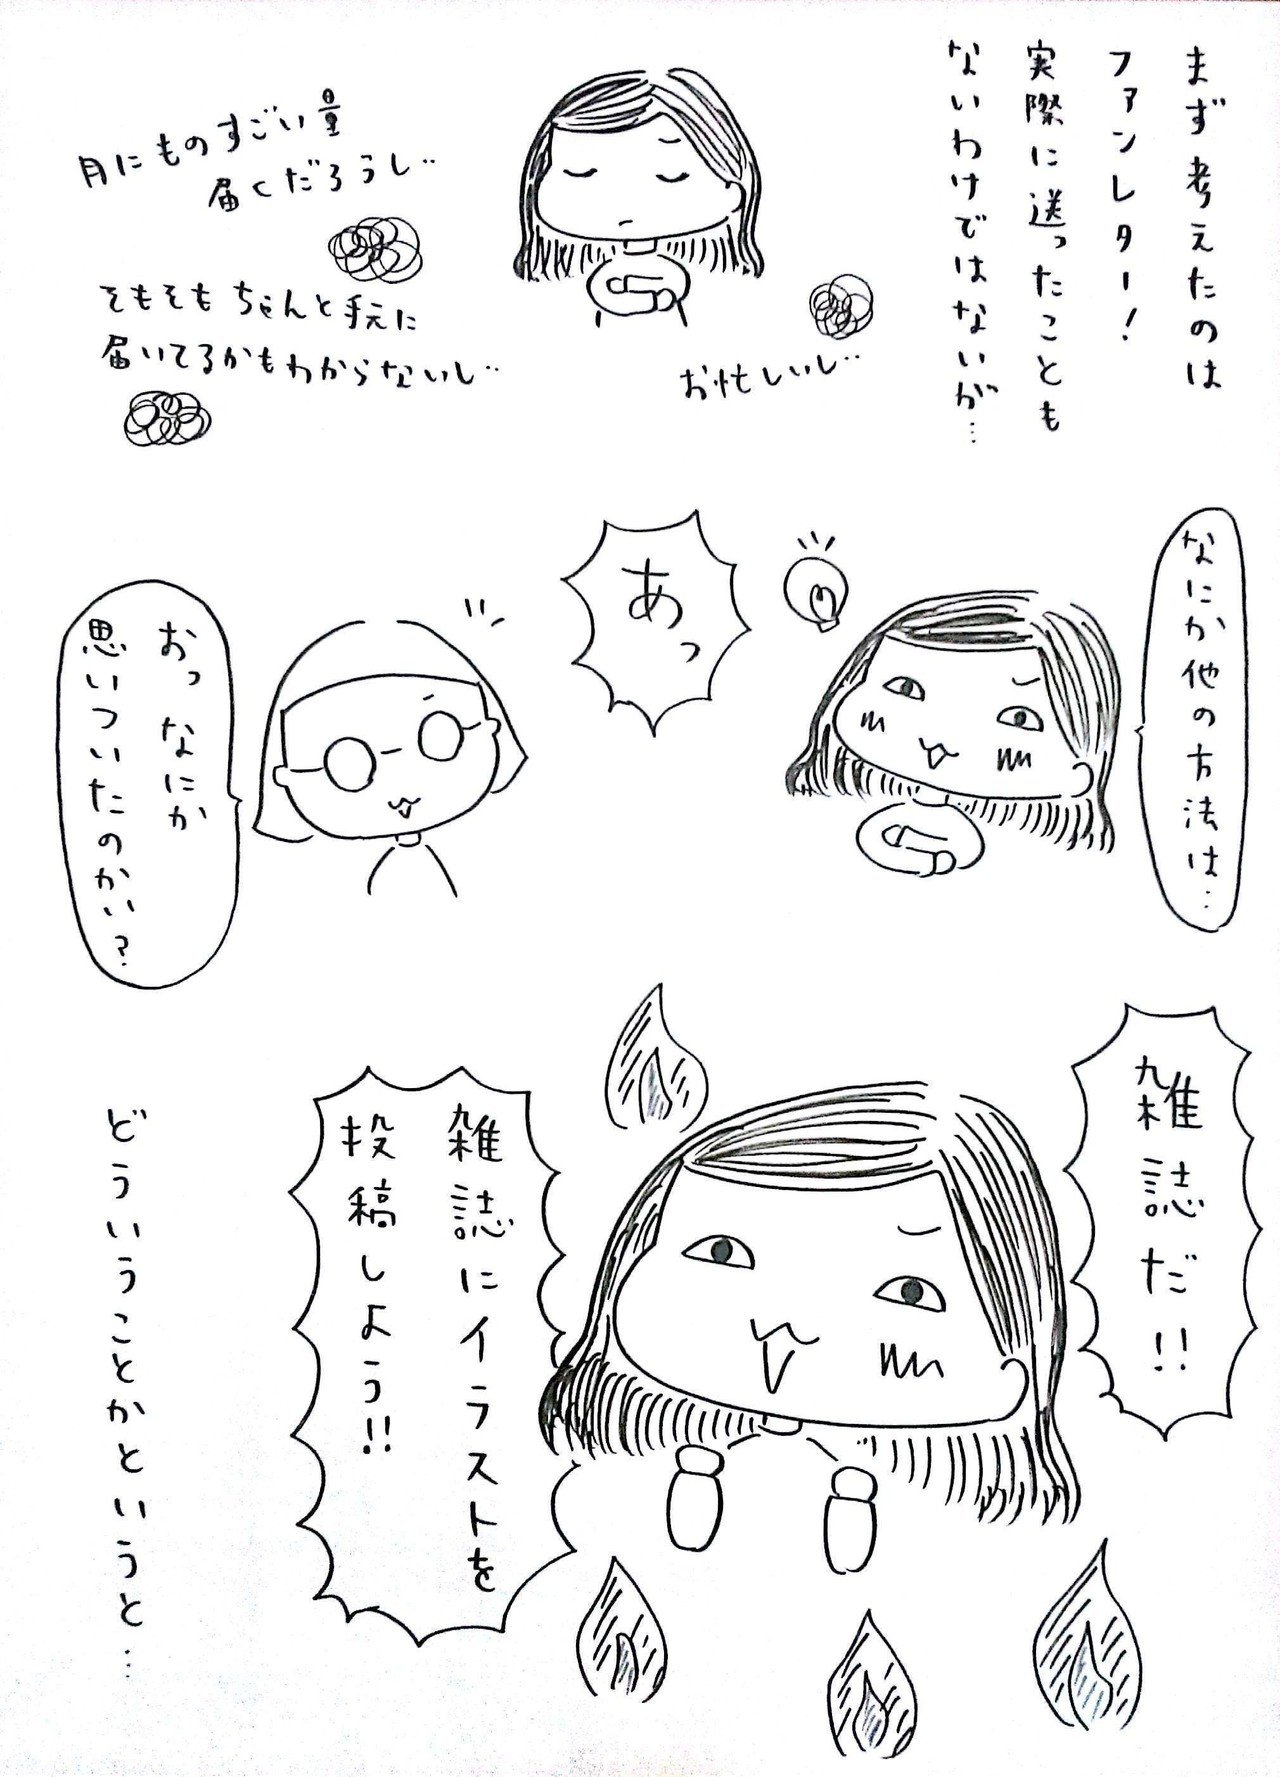 まず考えたのは
ファンレター!
実際に送ったことも
ないわけではないが…
お忙しいし…
月にものすごい量
届くだろうし…
そもそもちゃんと手元に
届いてるかもわからないし…
なにか他の方法は…
あっ
おっなにか
思いついたのかい?
雑誌だ!!
雑誌にイラストを
投稿しよう!!
どういうことかというと…